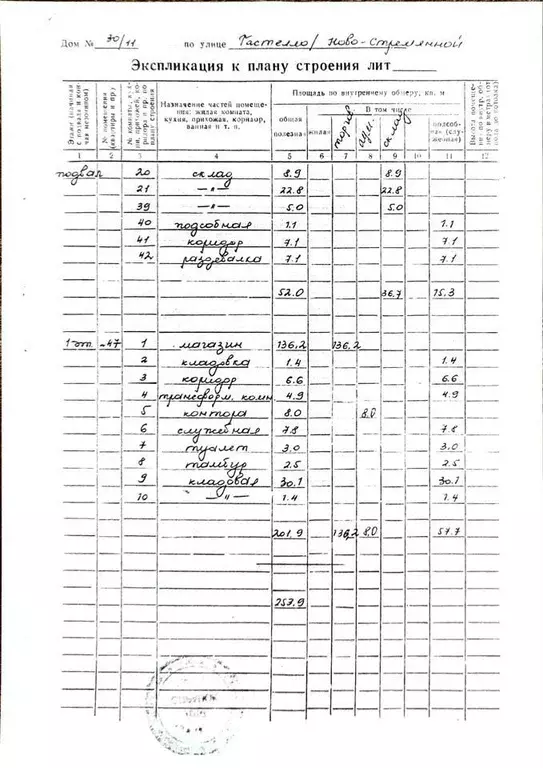 Дом № 30/11 по улице Гастелло/Ново-Стремянной
Экспликация к плану строения лит
Этажи (начиная с подвала и кончая мезонином)
№ помещения (квартиры и пр.)
Назначение частей помещения: жилая комната, кухня, прихожая, коридор, ванная и т. п.
Площадь по внутреннему обмеру, кв. м
В том числе
общая полезная
жилая
торгов.
склад
подсобная (служебная)
1 2 3 4 5 6 7 8 9 10 11 12
подвал 20 склад 8.9 8.9
21 —"— 22.8 22.8
39 —"— 5.0 5.0
40 подсобная 1.1 1.1
41 коридор 7.1 7.1
42 раздевалка 7.1 7.1
52.0 36.7 15.3
1 эт. -47 1 магазин 136,2 136,2
2 кладовка 1.4 1.4
3 коридор 6.6 6.6
4 трансформ. комн 4.9 4.9
5 контора 8.0 8.0
6 служебная 7.8 7.8
7 туалет 3.0 3.0
8 тамбур 2.5 2.5
9 кладовая 30.1 30.1
10 —"— 1.4 1.4
201.9 136,2 8.0 57.7
253.9